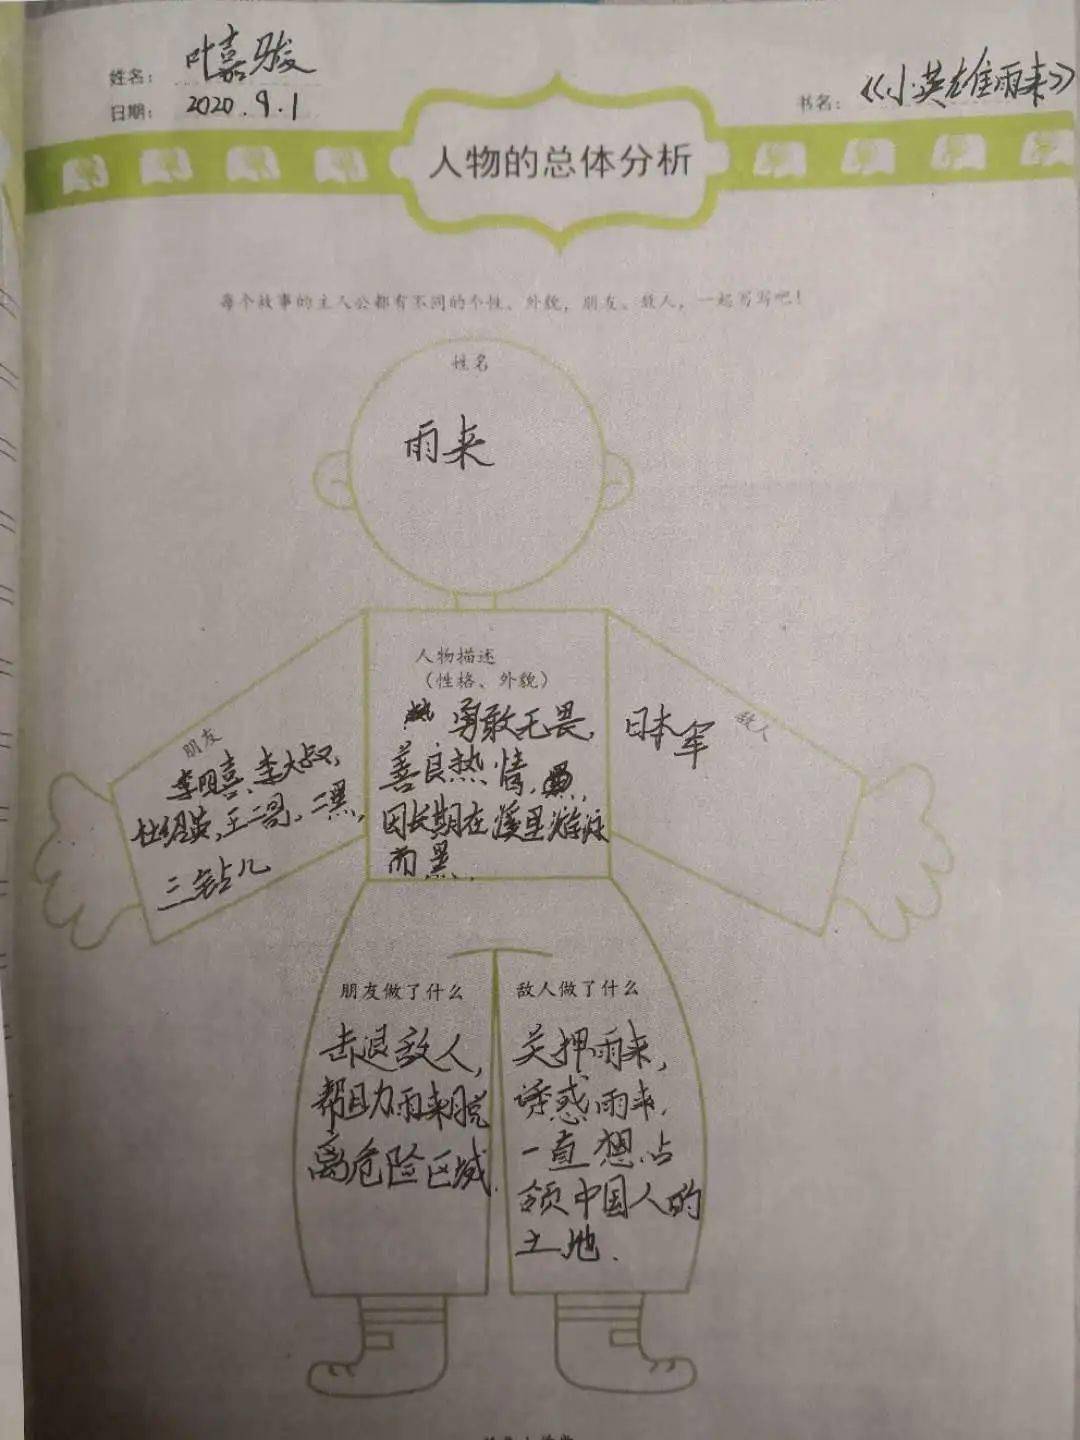 姓名： 叶嘉骏
日期： 2020.9.1
书名： 《小英雄雨来》
人物的总体分析
每个故事的主人公都有不同的个性、外貌，朋友、敌人，一起写写吧！
姓名
雨来
人物描述
（性格、外貌）
勇敢无畏，
善良热情，
因长期在溪里游泳
而黑.
朋友
李四喜、李大叔，
杜绍英，王二哥，二黑，
三钻儿
敌人
日本军
朋友做了什么
击退敌人，
帮助雨来脱
离危险区域.
敌人做了什么
关押雨来，
诱惑雨来，
一直想占
领中国人的
土地.